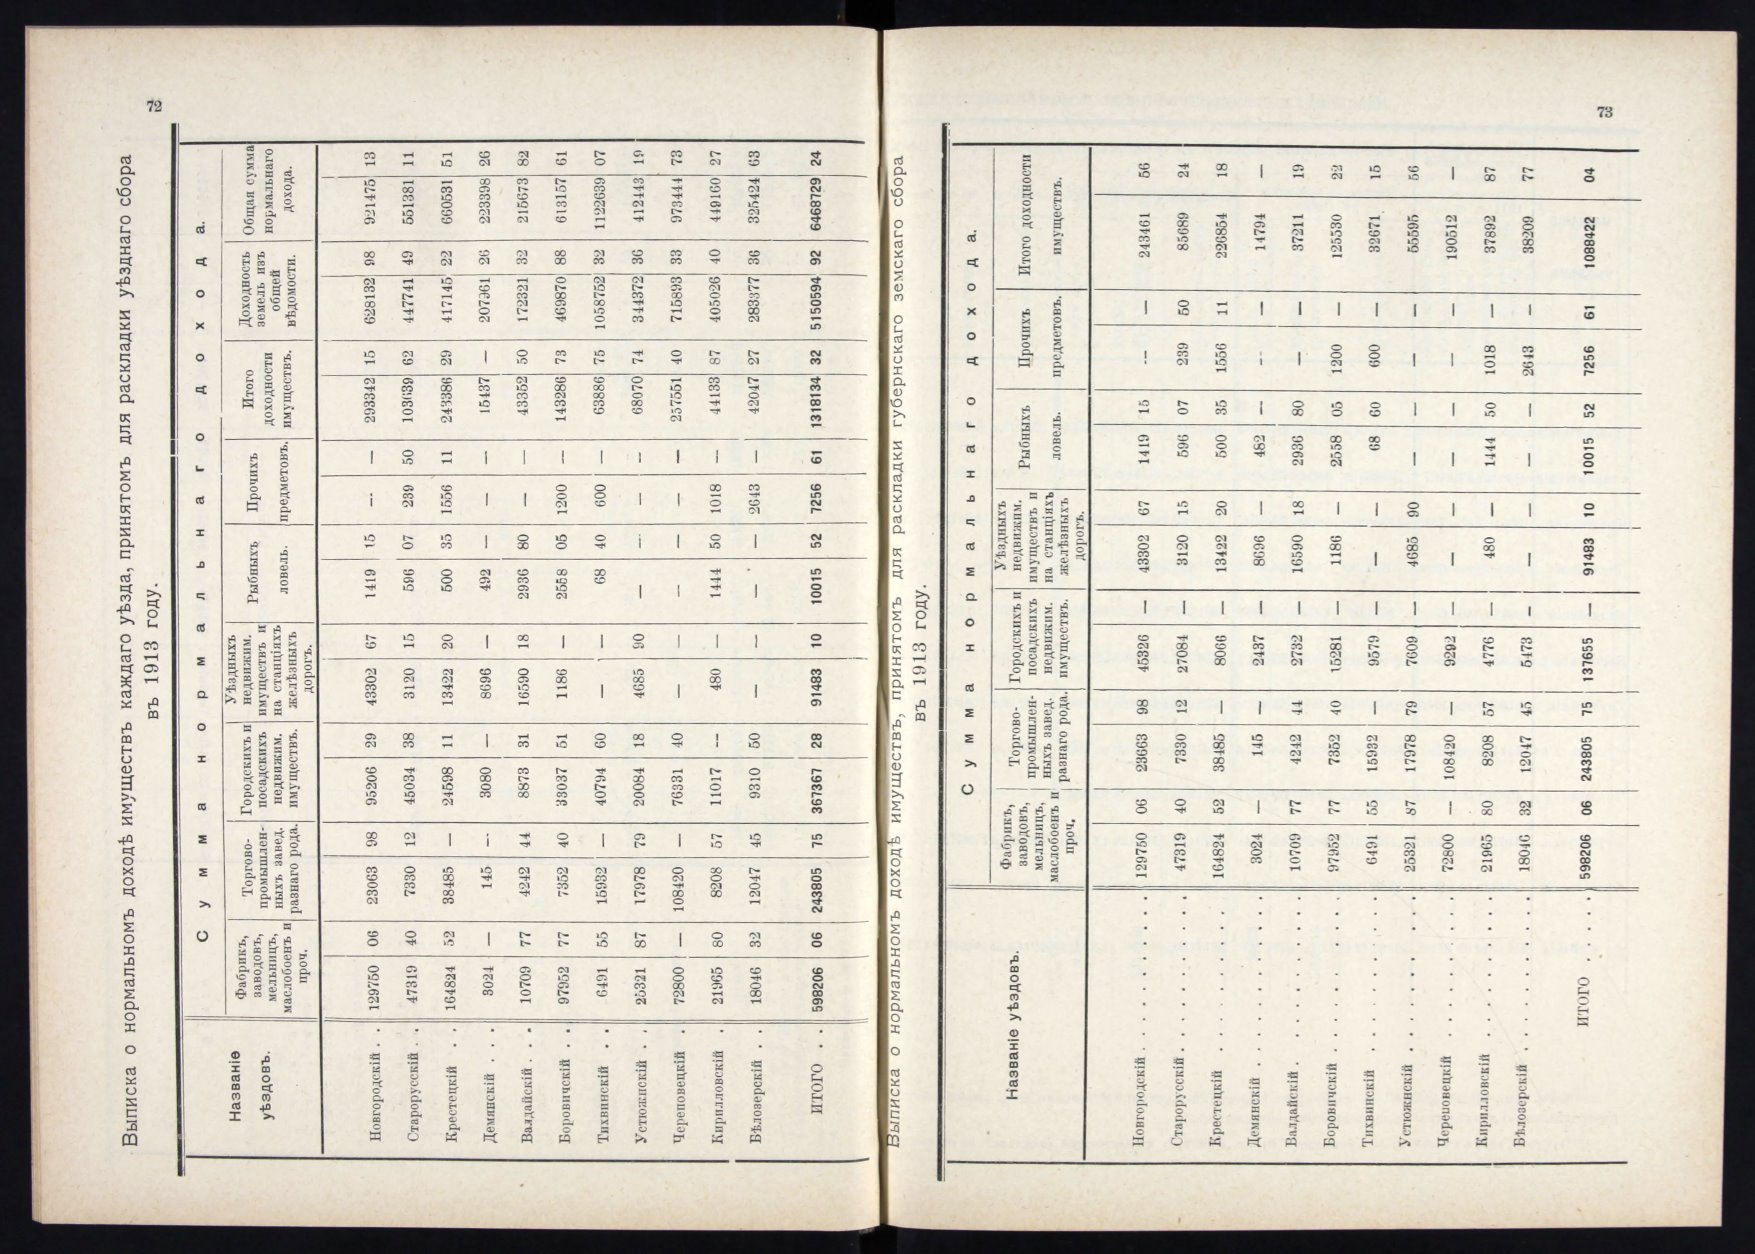 72
Выписка о нормальномъ доходѣ имуществъ каждаго уѣзда, принятомъ для раскладки уѣзднаго сбора
въ 1913 году.
Названіе уѣздовъ.
Сумма нормальнаго дохода.
Фабрикъ, заводовъ, мельницъ, маслобоенъ и проч.
Торгово-промышлен-ныхъ завед. разнаго рода.
Городскихъ и посадскихъ недвижим. имуществъ.
Уѣздныхъ недвижим. имуществъ и на станціяхъ желѣзныхъ дорогъ.
Рыбныхъ ловель.
Прочихъ предметовъ.
Итого доходности имуществъ.
Доходность земель изъ общей вѣдомости.
Общая сумма нормальнаго дохода.
Новгородскій . . 129750 06 23063 98 95206 29 43302 67 1419 15 — — 293342 15 628132 98 921475 13
Старорусскій . . 47319 40 7330 12 45034 38 3120 15 596 07 239 50 103639 62 447741 49 551381 11
Крестецкій . . 164824 52 38485 — 24598 11 13422 20 500 35 1556 11 243386 29 417145 22 660531 51
Демянскій . . . 3024 — 145 — 3080 — 8696 — 492 — — — 15437 — 207961 26 223398 26
Валдайскій . . . 10709 77 4242 44 8873 31 16590 18 2936 80 — — 43352 50 172321 32 215673 82
Боровичскій . . 97952 77 7352 40 33037 51 1186 — 2558 05 1200 — 143286 73 469870 88 613157 61
Тихвинскій . . 6491 55 15932 — 40794 60 — — 68 40 600 — 63886 75 1058752 32 1122639 07
Устюжнскій . . 25321 87 17978 79 20084 18 4685 90 — — — — 68070 74 344372 36 412443 19
Череповецкій . 72800 — 108420 — 76331 40 — — — — — — 257551 40 715893 33 973444 73
Кирилловскій . 21965 80 8208 57 11017 — 480 — 1444 50 1018 — 44133 87 405026 40 449160 27
Бѣлозерскій . . 18046 32 12047 45 9310 50 — — — — 2643 — 42047 27 283377 36 325424 63
ИТОГО . . 598206 06 243805 75 367367 28 91483 10 10015 52 7256 61 1318134 32 5150594 92 6468729 24
73
Выписка о нормальномъ доходѣ имуществъ, принятомъ для раскладки губернскаго земскаго сбора
въ 1913 году.
Названіе уѣздовъ.
Сумма нормальнаго дохода.
Фабрикъ, заводовъ, мельницъ, маслобоенъ и проч.
Торгово-промышлен-ныхъ завед. разнаго рода.
Городскихъ и посадскихъ недвижим. имуществъ.
Уѣздныхъ недвижим. имуществъ и на станціяхъ желѣзныхъ дорогъ.
Рыбныхъ ловель.
Прочихъ предметовъ.
Итого доходности имуществъ.
Новгородскій . . . . . . 129750 06 23663 98 45326 — 43302 67 1419 15 — — 243461 56
Старорусскій . . . . . . 47319 40 7330 12 27084 — 3120 15 596 07 239 50 85689 24
Крестецкій . . . . . . 164824 52 38485 — 8066 — 13422 20 500 35 1556 11 226854 18
Демянскій . . . . . . 3024 — 145 — 2437 — 8696 — 482 — — — 14794 —
Валдайскій . . . . . . 10709 77 4242 44 2732 — 16590 18 2936 80 — — 37211 19
Боровичскій . . . . . . 97952 77 7352 40 15281 — 1186 — 2558 05 1200 — 125530 22
Тихвинскій . . . . . . 6491 55 15932 — 9579 — — — 68 60 600 — 32671 15
Устюжнскій . . . . . . 25321 87 17978 79 7609 — 4685 90 — — — — 55595 56
Череповецкій . . . . . . 72800 — 108420 — 9292 — — — — — — — 190512 —
Кирилловскій . . . . . . 21965 80 8208 57 4776 — 480 — 1444 50 1018 — 37892 87
Бѣлозерскій . . . . . . 18046 32 12047 45 5473 — — — — — 2643 — 38209 77
ИТОГО . . . . . 598206 06 243805 75 137655 — 91483 10 10015 52 7256 61 1088422 04